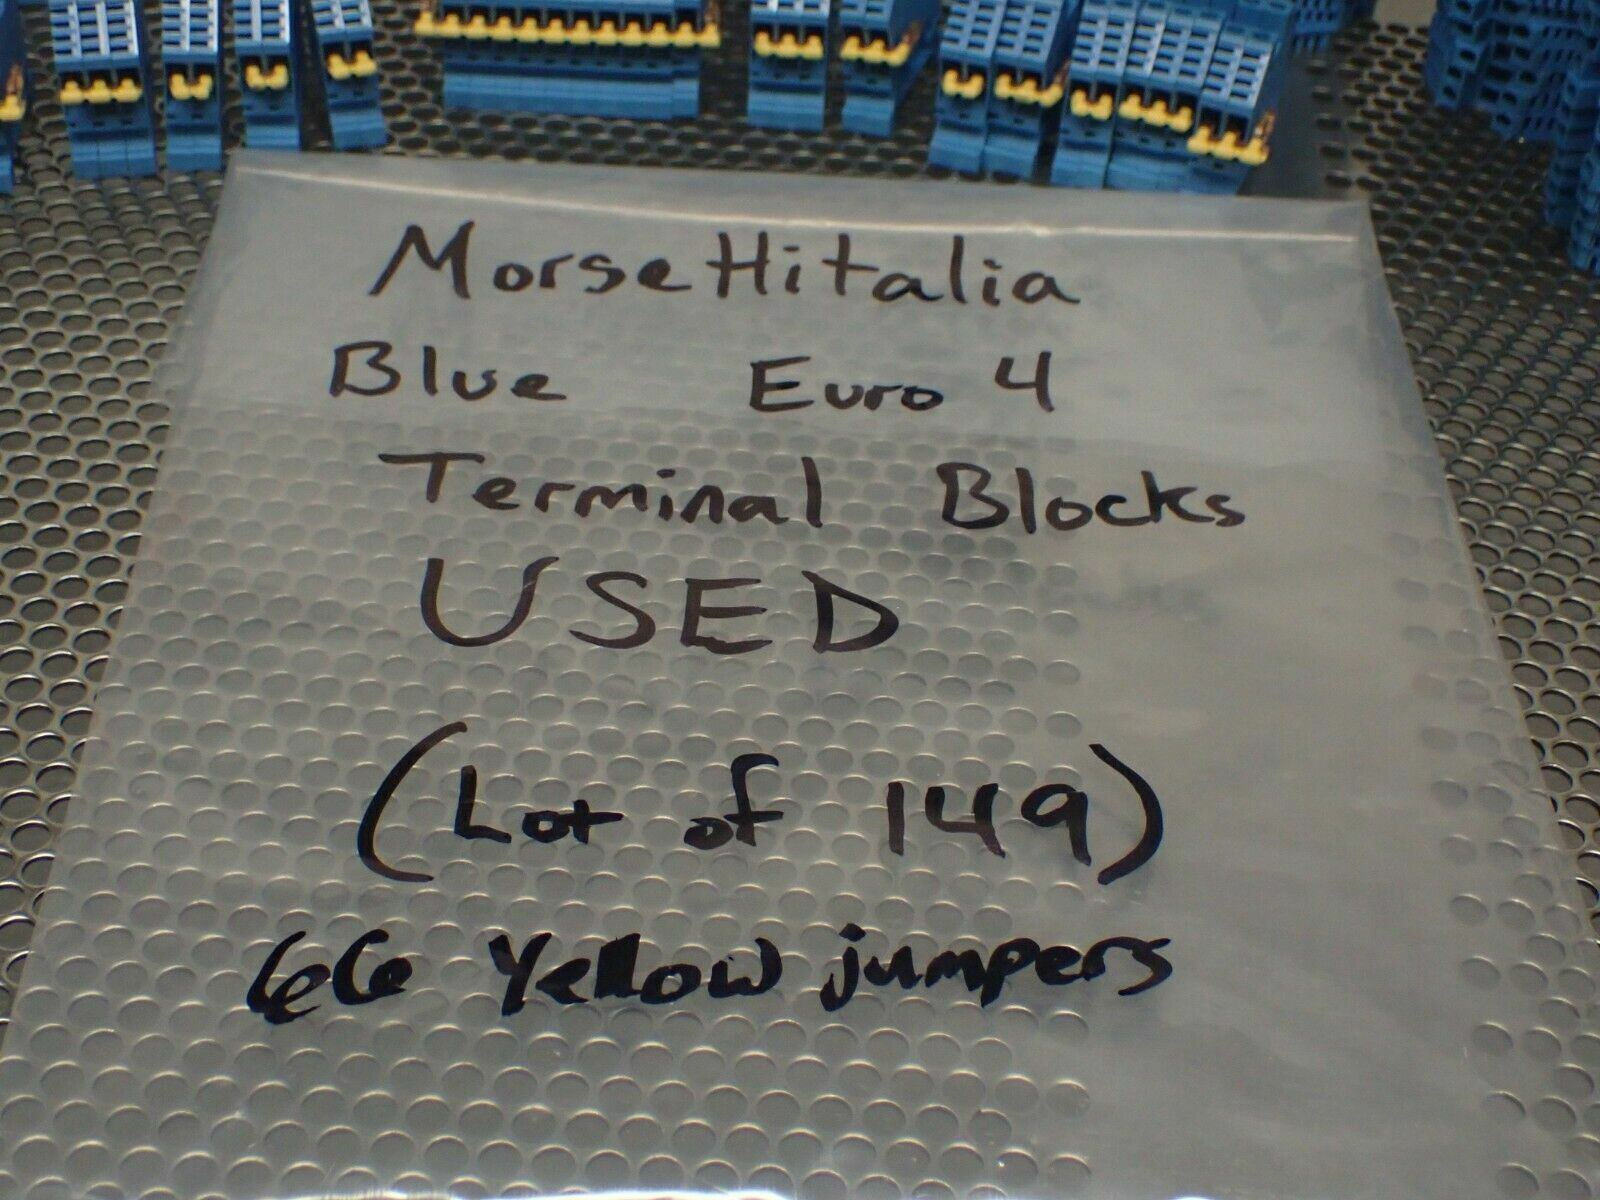 Morsettitalia
Blue Euro 4
Terminal Blocks
USED
(Lot of 149)
66 Yellow jumpers